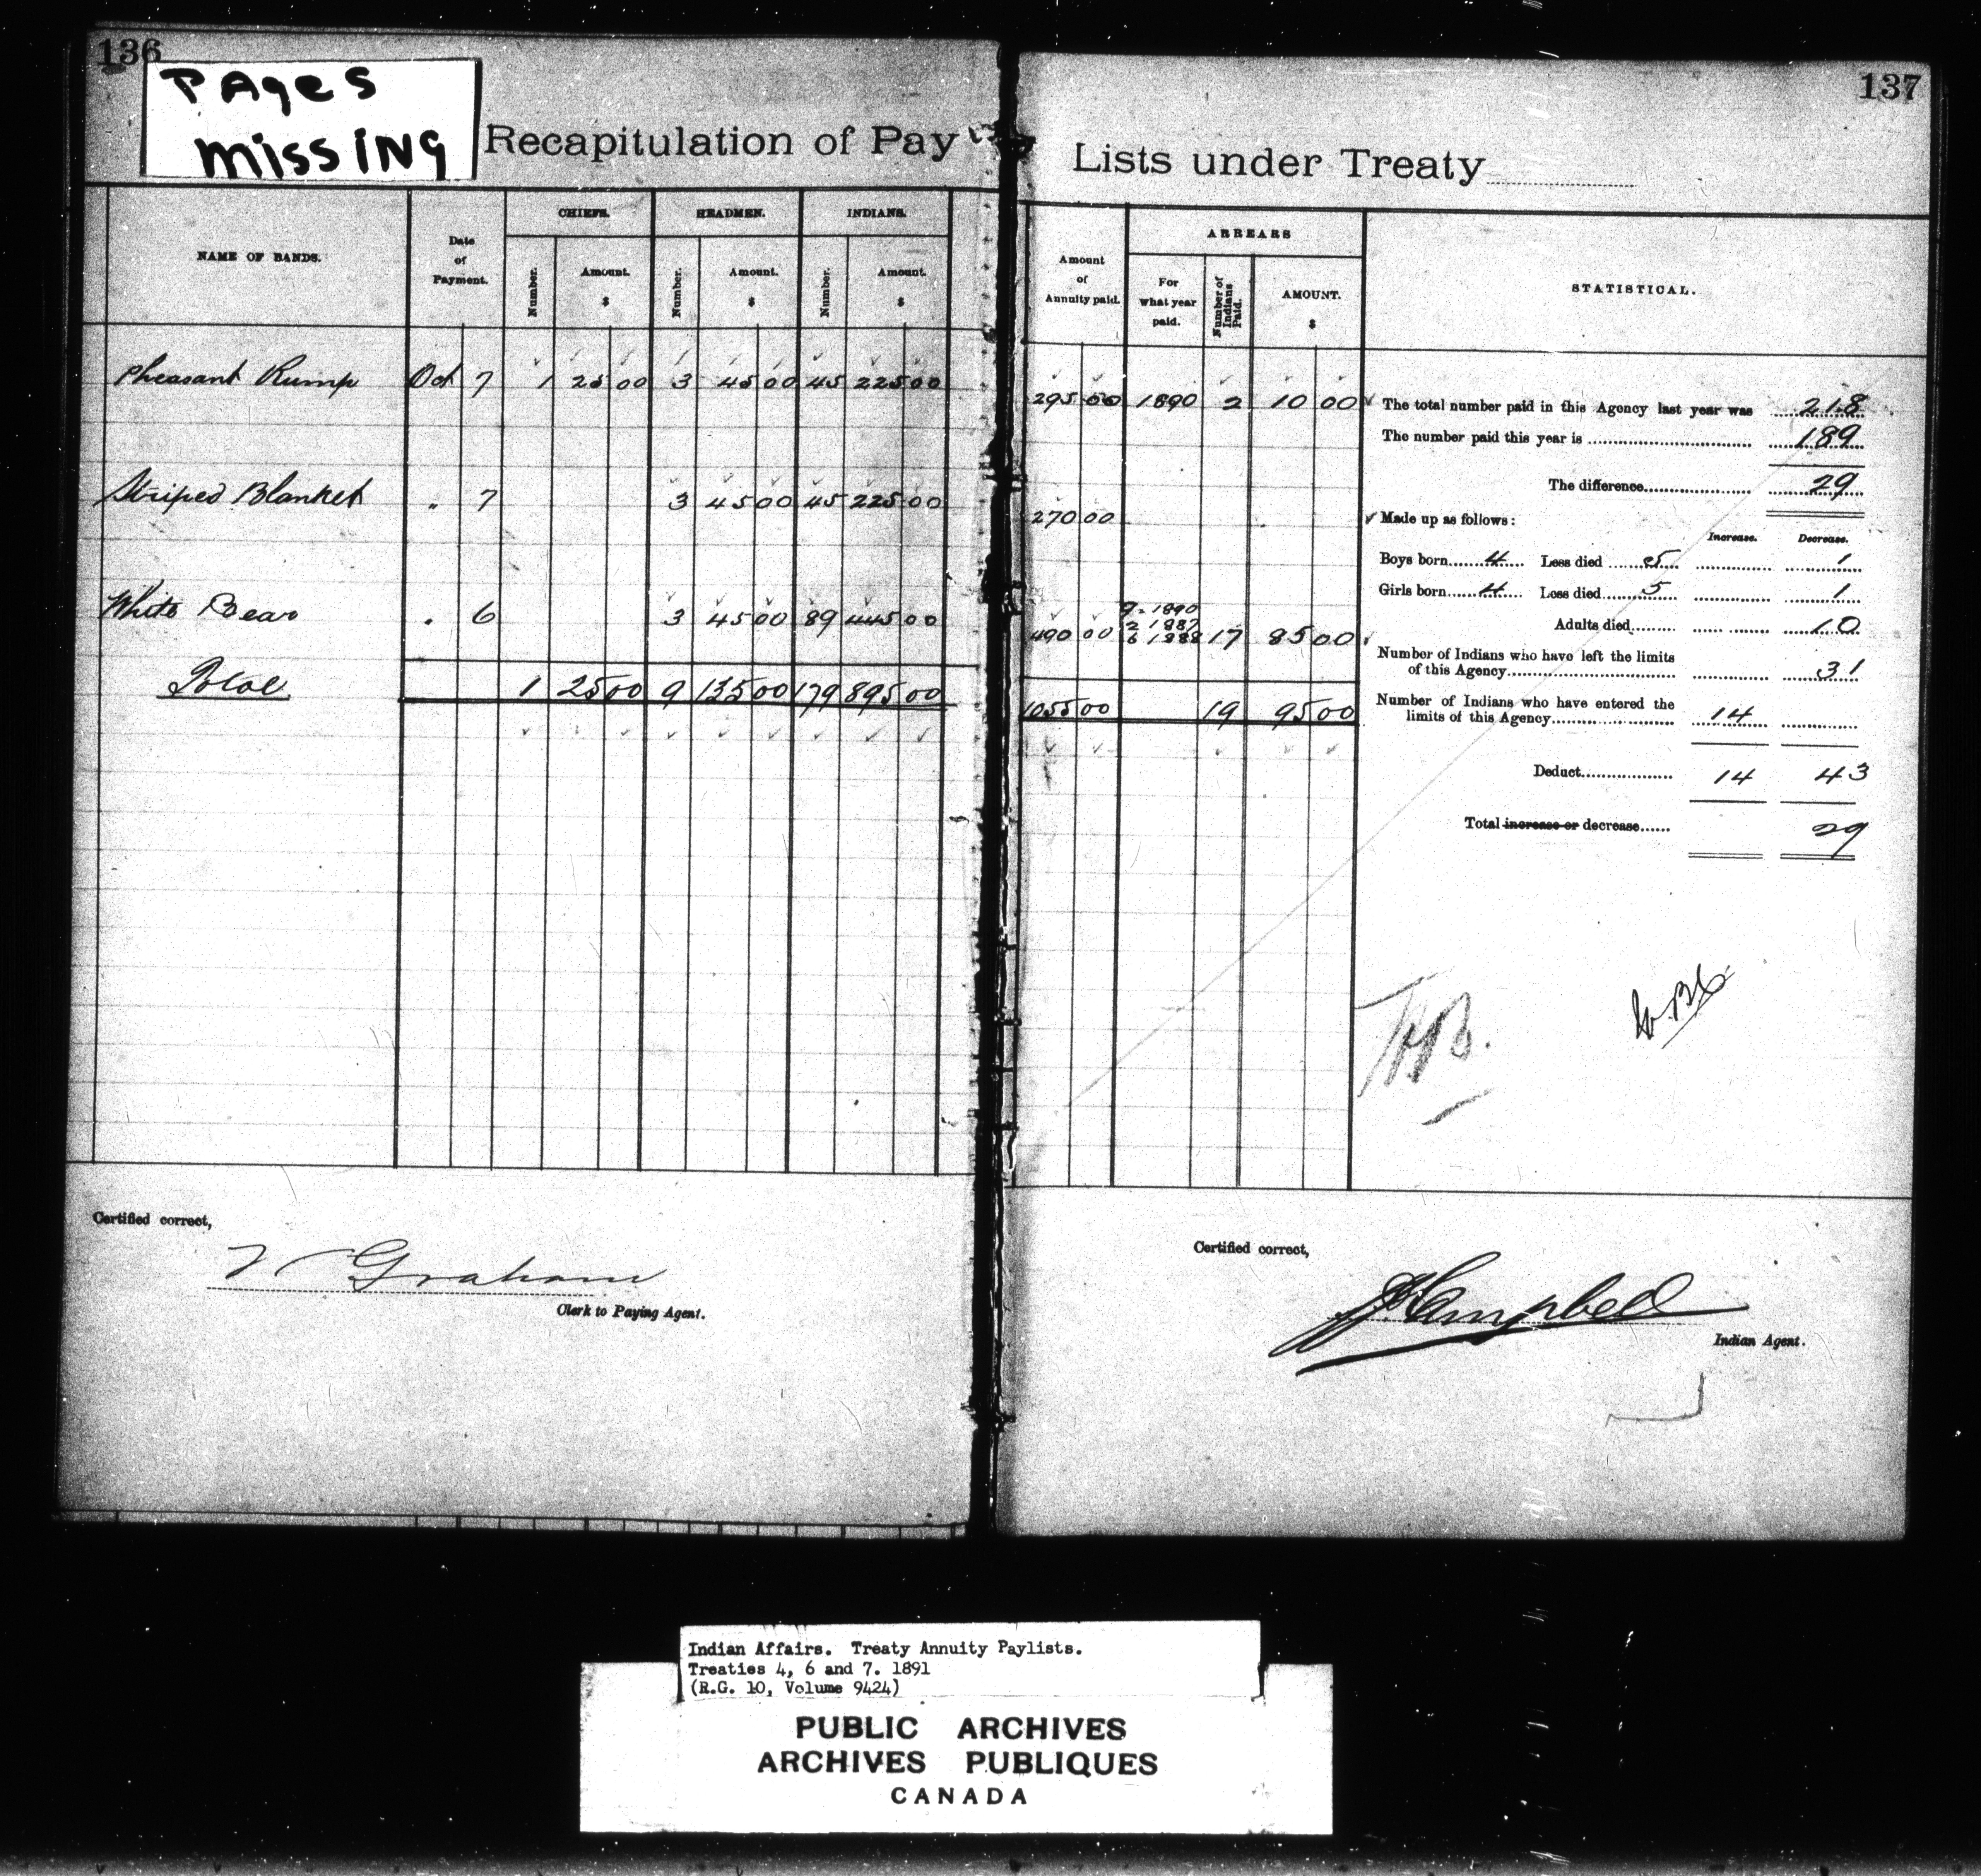 136
PAges
missing
Recapitulation of Pay
137
Lists under Treaty
NAME OF BANDS.
Date
of
Payment.
CHIEFS.
HEADMEN.
INDIANS.
Number.
Amount.
$
Number.
Amount.
$
Number.
Amount.
$
Amount
of
Annuity paid.
ARREARS
For
what year
paid.
Number of
Indians
Paid.
AMOUNT.
$
STATISTICAL.
Pheasant Rump Oct 7 1 25 00 3 45 00 45 225 00 295 00 1890 2 10 00
Striped Blanket " 7 3 45 00 45 225 00 270 00
9-1890
2 1887
White Bear " 6 3 45 00 89 445 00 490 00 6 1888 17 85 00
Total 1 25 00 9 135 00 179 895 00 1055 00 19 95 00
The total number paid in this Agency last year was 218
The number paid this year is 189
The difference 29
Made up as follows:
Increase. Decrease.
Boys born 4 Less died 5 1
Girls born 4 Less died 5 1
Adults died 10
Number of Indians who have left the limits
of this Agency 31
Number of Indians who have entered the
limits of this Agency 14
Deduct 14 43
Total increase or decrease 29
Certified correct,
Graham
Clerk to Paying Agent.
Certified correct,
Campbell
Indian Agent.
Indian Affairs. Treaty Annuity Paylists.
Treaties 4, 6 and 7. 1891
(R.G. 10, Volume 9424)
PUBLIC ARCHIVES
ARCHIVES PUBLIQUES
CANADA